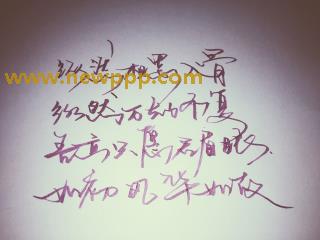 纵相思入骨
www.newppp.com
纵然万劫不复
只愿君眉眼
如初风华如故